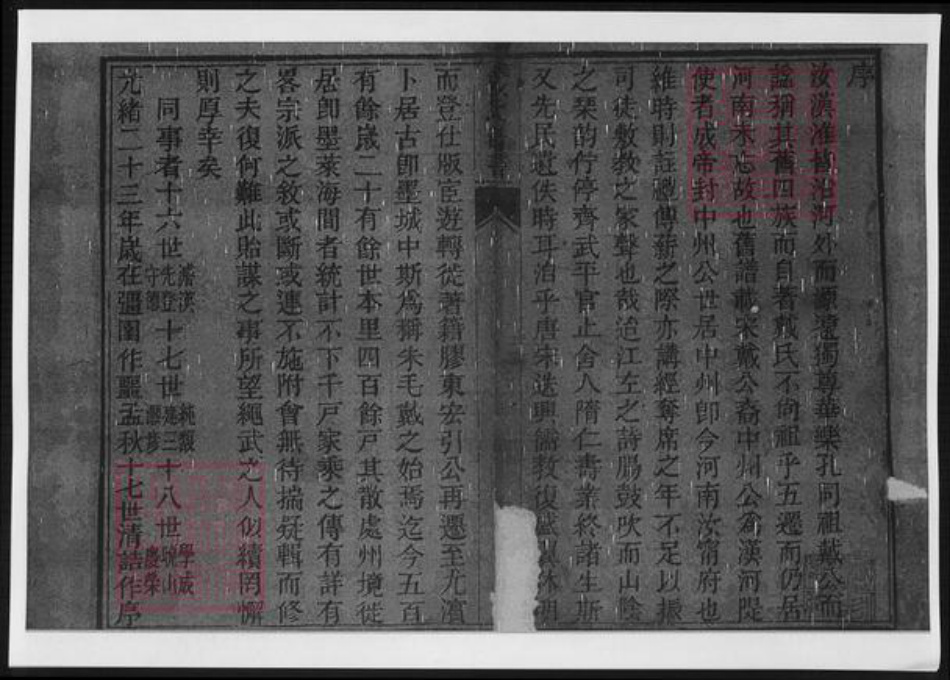 序
汝漢淮皆治河外而源遠獨尊華樂孔同祖戴公而
猶其舊四族而自著戴氏不尚祖乎五遷而仍居
河南未忘故也舊譜載宋戴公裔中州公為漢河隄
使者成帝封中州公世居中州卽今河南汝甯府也
維時則註禮傳薪之際亦講經奪席之年不足以振
司徒敷教之家聲也哉迨江左之詩腸鼓吹而山陰
之琴的佇停齊武平官止舍人隋仁壽業終諸生斯
又先民遺佚時耳洎乎唐宋迭興儒教復盛
而登仕版宦遊轉徙著籍膠東宏引公再遷至尤濵
卜居古卽墨城中斯爲稱朱毛戴之始焉迄今五百
有餘嵗二十有餘世本里四百餘戸其散處州境徙
居卽墨萊海間者統計不下千戸家乘之傳有詳有
畧宗派之敘或斷或連不施附會無待揣疑輯而修
之夫復何難此貽謀之事所望繩武之人似續罔懈
則厚幸矣
同事者十六世 先登 守德 十七世 建三 十八世 學成 曉山 慶榮
光緒二十三年嵗在彊圉作噩孟秋十七世清喆作序